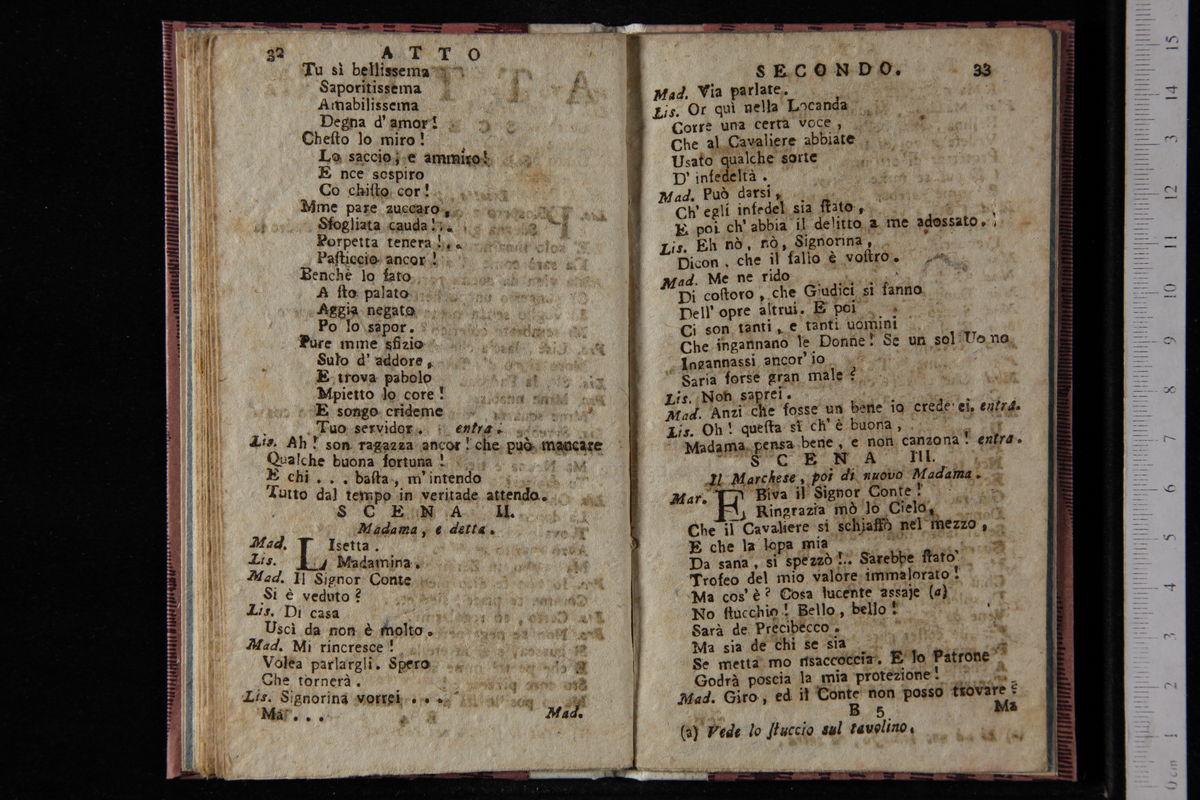 32 ATTO
Tu sì bellissema
Saporitissema
Amabilissema
Degna d' amor!
Chesto lo miro!
Lo saccio, e ammiro!
E nce sospiro
Co chisto cor!
Mme pare zuccaro,
Sfogliata cauda!..
Porpetta tenera!..
Pasticcio ancor!
Benchè lo fato
A sto palato
Aggia negato
Po lo sapor.
Pure mme sfizio
Sulo d' addore,
E trova pabolo
Mpietto lo core!
E songo crideme
Tuo servidor. entra.
Lis. Ah! son ragazza ancor! che può mancare
Qualche buona fortuna!
E chi ... basta, m' intendo
Tutto dal tempo in veritade attendo.
SCENA II.
Madama, e detta.
Mad. LIsetta.
Lis. Madamina.
Mad. Il Signor Conte
Si è veduto?
Lis. Di casa
Uscì da non è molto.
Mad. Mi rincresce!
Volea parlargli. Spero
Che tornerà.
Lis. Signorina vorrei ....
Ma ... Mad.
SECONDO. 33
Mad. Via parlate.
Lis. Or quì nella Locanda
Corre una certa voce,
Che al Cavaliere abbiate
Usato qualche sorte
D' infedeltà.
Mad. Può darsi,
Ch' egli infedel sia stato,
E poi ch' abbia il delitto a me adossato.
Lis. Eh nò, nò, Signorina,
Dicon, che il fallo è vostro.
Mad. Me ne rido
Di costoro, che Giudici si fanno
Dell' opre altrui. E poi
Ci son tanti, e tanti uomini
Che ingannano le Donne! Se un sol Uomo
Ingannassi ancor' io
Saria forse gran male?
Lis. Non saprei.
Mad. Anzi che fosse un bene io crederei. entra.
Lis. Oh! questa sì ch' è buona,
Madama pensa bene, e non canzona! entra.
SCENA III.
Il Marchese, poi di nuovo Madama.
Mar. EBiva il Signor Conte!
Ringrazia mò lo Cielo,
Che il Cavaliere si schiaffò nel mezzo,
E che la lopa mia
Da sana, si spezzò!.. Sarebbe stato
Trofeo del mio valore immalorato!
Ma cos' è? Cosa lucente assaje (a)
No stucchio! Bello, bello!
Sarà de Precibecco.
Ma sia de chi se sia
Se metta mo nsaccoccia. E lo Patrone
Godrà poscia la mia protezione!
Mad. Giro, ed il Conte non posso trovare?
B 5 Ma
(a) Vede lo stuccio sul tavolino.
15
14
3
12
11
10
9
8
7
6
5
4
3
2
1
0 cm